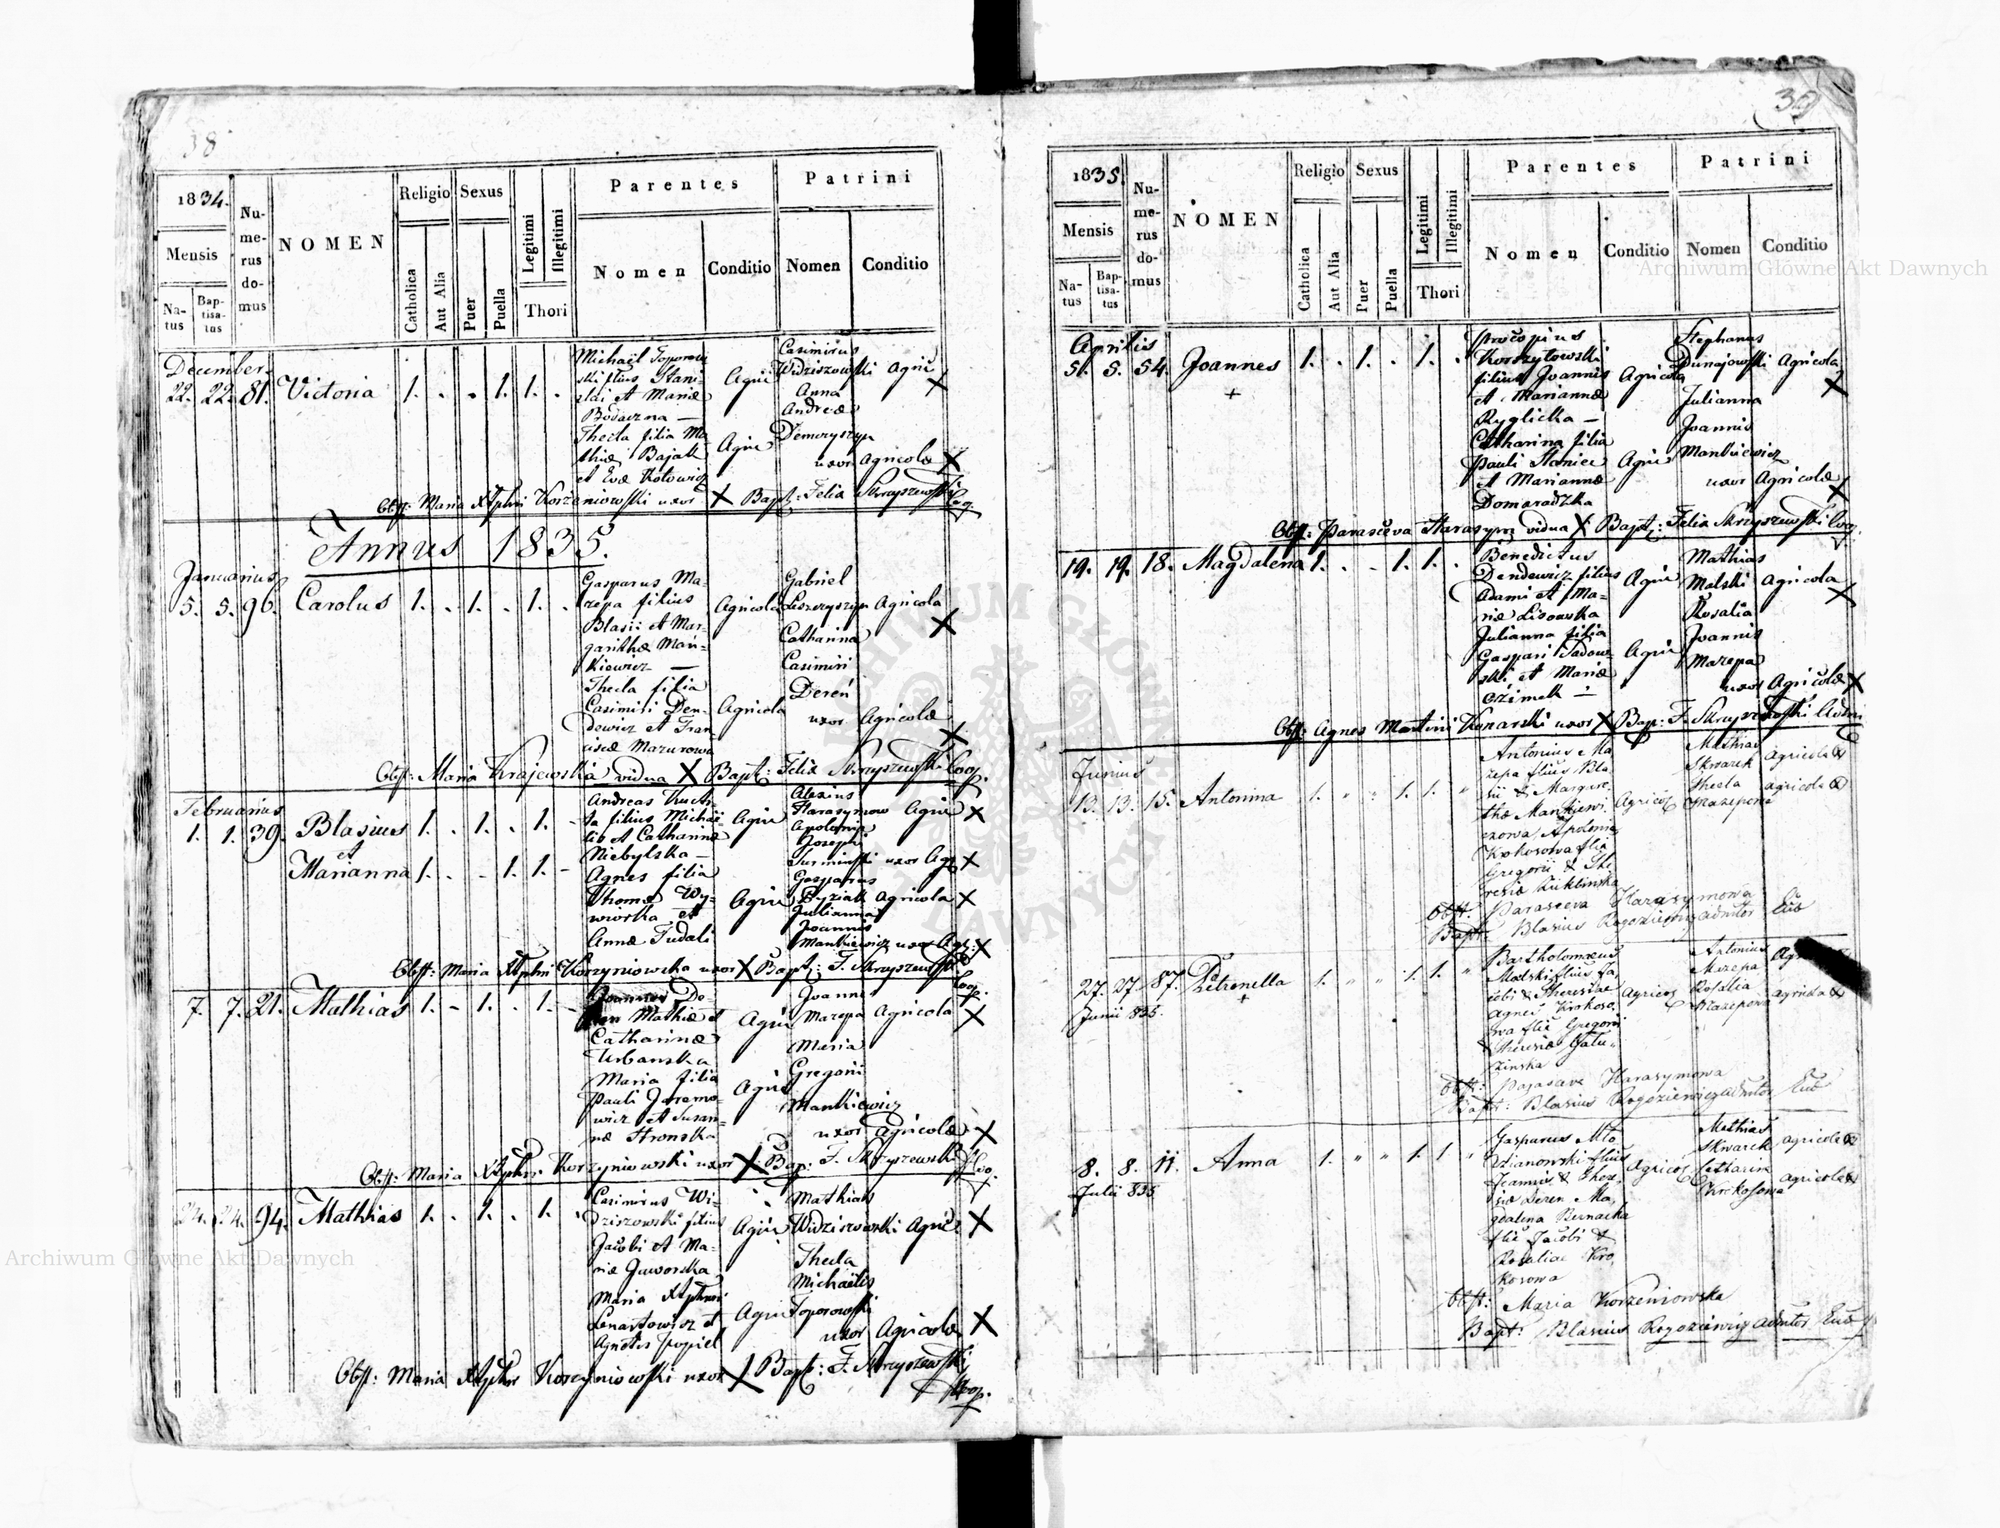 38
1834.
Mensis
Na-
tus
Bap-
tisa-
tus
Nu-
me-
rus
do-
mus
NOMEN
Religio
Catholica
Aut Alia
Sexus
Puer
Puella
Legitimi
Illegitimi
Thori
Parentes
Nomen
Conditio
Patrini
Nomen
Conditio
December
22. 22. 81. Victoria 1. . . 1. 1. .
Michael Toporow
ski filius Stani-
slai et Mariæ
Bodaczna —
Thecla filia Ma-
thiæ Bajak
et Evæ Kotowicz
Agric
Agric
Casimirus
Widziszowski Agric X
Anna
Andreæ
Demczyszyn
uxor Agricolæ X
Obst: Maria Xtphri Korzeniowski uxor X Bapt: Felix Skrzyszewski Coop.
Annus 1835.
Januarius
5. 5. 96. Carolus 1. . 1. . 1. .
Gasparus Ma-
zepa filius
Blasii et Mar-
garithæ Man-
kiewicz —
Thecla filia
Casimiri Den-
dewicz et Fran
ciscæ Mazurowa
Agricola
Agricola
Gabriel
Leszczyszyn Agricola X
Catharina
Casimiri
Dereń
uxor Agricolæ X
Obst: Maria Krajewska vidua X Bapt: Felix Skrzyszewski Coop.
Februarius
1. 1. 39. Blasius 1. . 1. . 1. -
et
Marianna 1. . - 1. 1. -
Andreas Kuch-
ta filius Michaë-
lis et Catharinæ
Niebylska —
Agnes filia
Thomæ Wy-
wiorka et
Annæ Fudali
Agric
Agric
Alexius
Harasymow Agric X
Apolonia
Joseph
Surmiński uxor Agr X
Gasparus
Pyziak Agricola X
Julianna
Joannis
Mankiewicz uxor Agr: X
Obst: Maria Xtphri Korzyniowska uxor X Bapt: F. Skrzyszewski
Coop.
7. 7. 21. Mathias 1. - 1. . 1. -
Mathiæ et
Catharinæ
Urbanska
Maria filia
Pauli Jaremo-
wicz et Susan-
næ Hronska
Agric
Agric
Joannes
Mazepa Agricola X
Maria
Gregorii
Mankiewicz
uxor Agricolæ X
Obst: Maria Xtphri Korzyniowski uxor X Bap: F. Skrzyszewski
Coo.
24. 24. 94. Mathias 1. . 1. . 1. .
Casimirus Wi-
dziszowski filius
Jacobi et Ma-
riæ Jaworska
Maria Xtphori
Lenartowicz et
Agnetis Popiel
Agric
Agric
Mathias
Widziszowski Agric X
Thecla
Michaëlis
Toporowski
uxor Agricolæ X
Obst: Maria Xtphri Korzyniowski uxor X Bapt: F. Skrzyszewski
Coop.
39
1835.
Mensis
Na-
tus
Bap-
tisa-
tus
Nu-
me-
rus
do-
mus
NOMEN
Religio
Catholica
Aut Alia
Sexus
Puer
Puella
Legitimi
Illegitimi
Thori
Parentes
Nomen
Conditio
Patrini
Nomen
Conditio
Aprilis
5. 5. 54. Joannes 1. . 1. . 1. .
+
Procopius
Korszytowski
filius Joannis
et Mariannæ
Ryglicka —
Catharina filia
Pauli Staniec
et Mariannæ
Domaradzka
Agricola
Agric
Stephanus
Dunajowski Agricola X
Julianna
Joannis
Mankiewicz
uxor Agricolæ X
Obst: Parasceva Harasym vidua X Bapt: Felix Skrzyszewski Coop
19. 19. 18. Magdalena 1. . . 1. 1. .
Benedictus
Dendewicz filius
Adami et Ma-
riæ Lisowska
Julianna filia
Gaspari Sadow-
ski et Mariæ
Ozimek —
Agric
Agric
Mathias
Malski Agricola X
Rosalia
Joannis
Mazepa
uxor Agricolæ X
Obst: Agnes Martini Konarski uxor X Bap: F. Skrzyszewski Admi
Junius
13. 13. 15. Antonina 1. " " 1. 1. "
Antonius Ma
zepa filius Bla
sii & Margare-
thæ Mankiewi-
czowa Apolonia
Krokosowa filia
Gregorii & The
resiæ Kuklinska
Agricola
Mathias
Skwarek
Agricola X
Thecla
Mazepowa
agricola X
Obst: Parasceva Harasymowa
Bapt: Blasius Rogoziewicz admtor Eub
27. 27. 87. Petronella 1. " " 1. 1. "
+
Junii 835.
Bartholomæus
Madski filius Ja
cobi & Theresiæ
Agnes Krokoso
wa filia Gregorii
& Theresiæ Gatu-
zinska
Agricos
Antonius
Mazepa
Rosalia
Mazepowa
agricola X
Obst: Parasave Harasymowa
Bapt: Blasius Rogoziewicz admtor Eub
8. 8. 11. Anna 1. " " 1. 1 "
Julii 835
Gasparus Mło
dzianowski filius
Joannis & Ther
siæ Deren Ma-
gdalena Bernacka
filia Jacobi &
Rosaliae Kro
kosowa
Agricos
Mathias
Skwarek agricola X
Catharin
Krokosowa agricola X
Obst: Maria Korzeniowska
Bapt: Blasius Rogoziewicz admtor Eub
Archiwum Główne Akt Dawnych
Archiwum Główne Akt Dawnych
ARCHIWUM GŁÓWNE AKT DAWNYCH